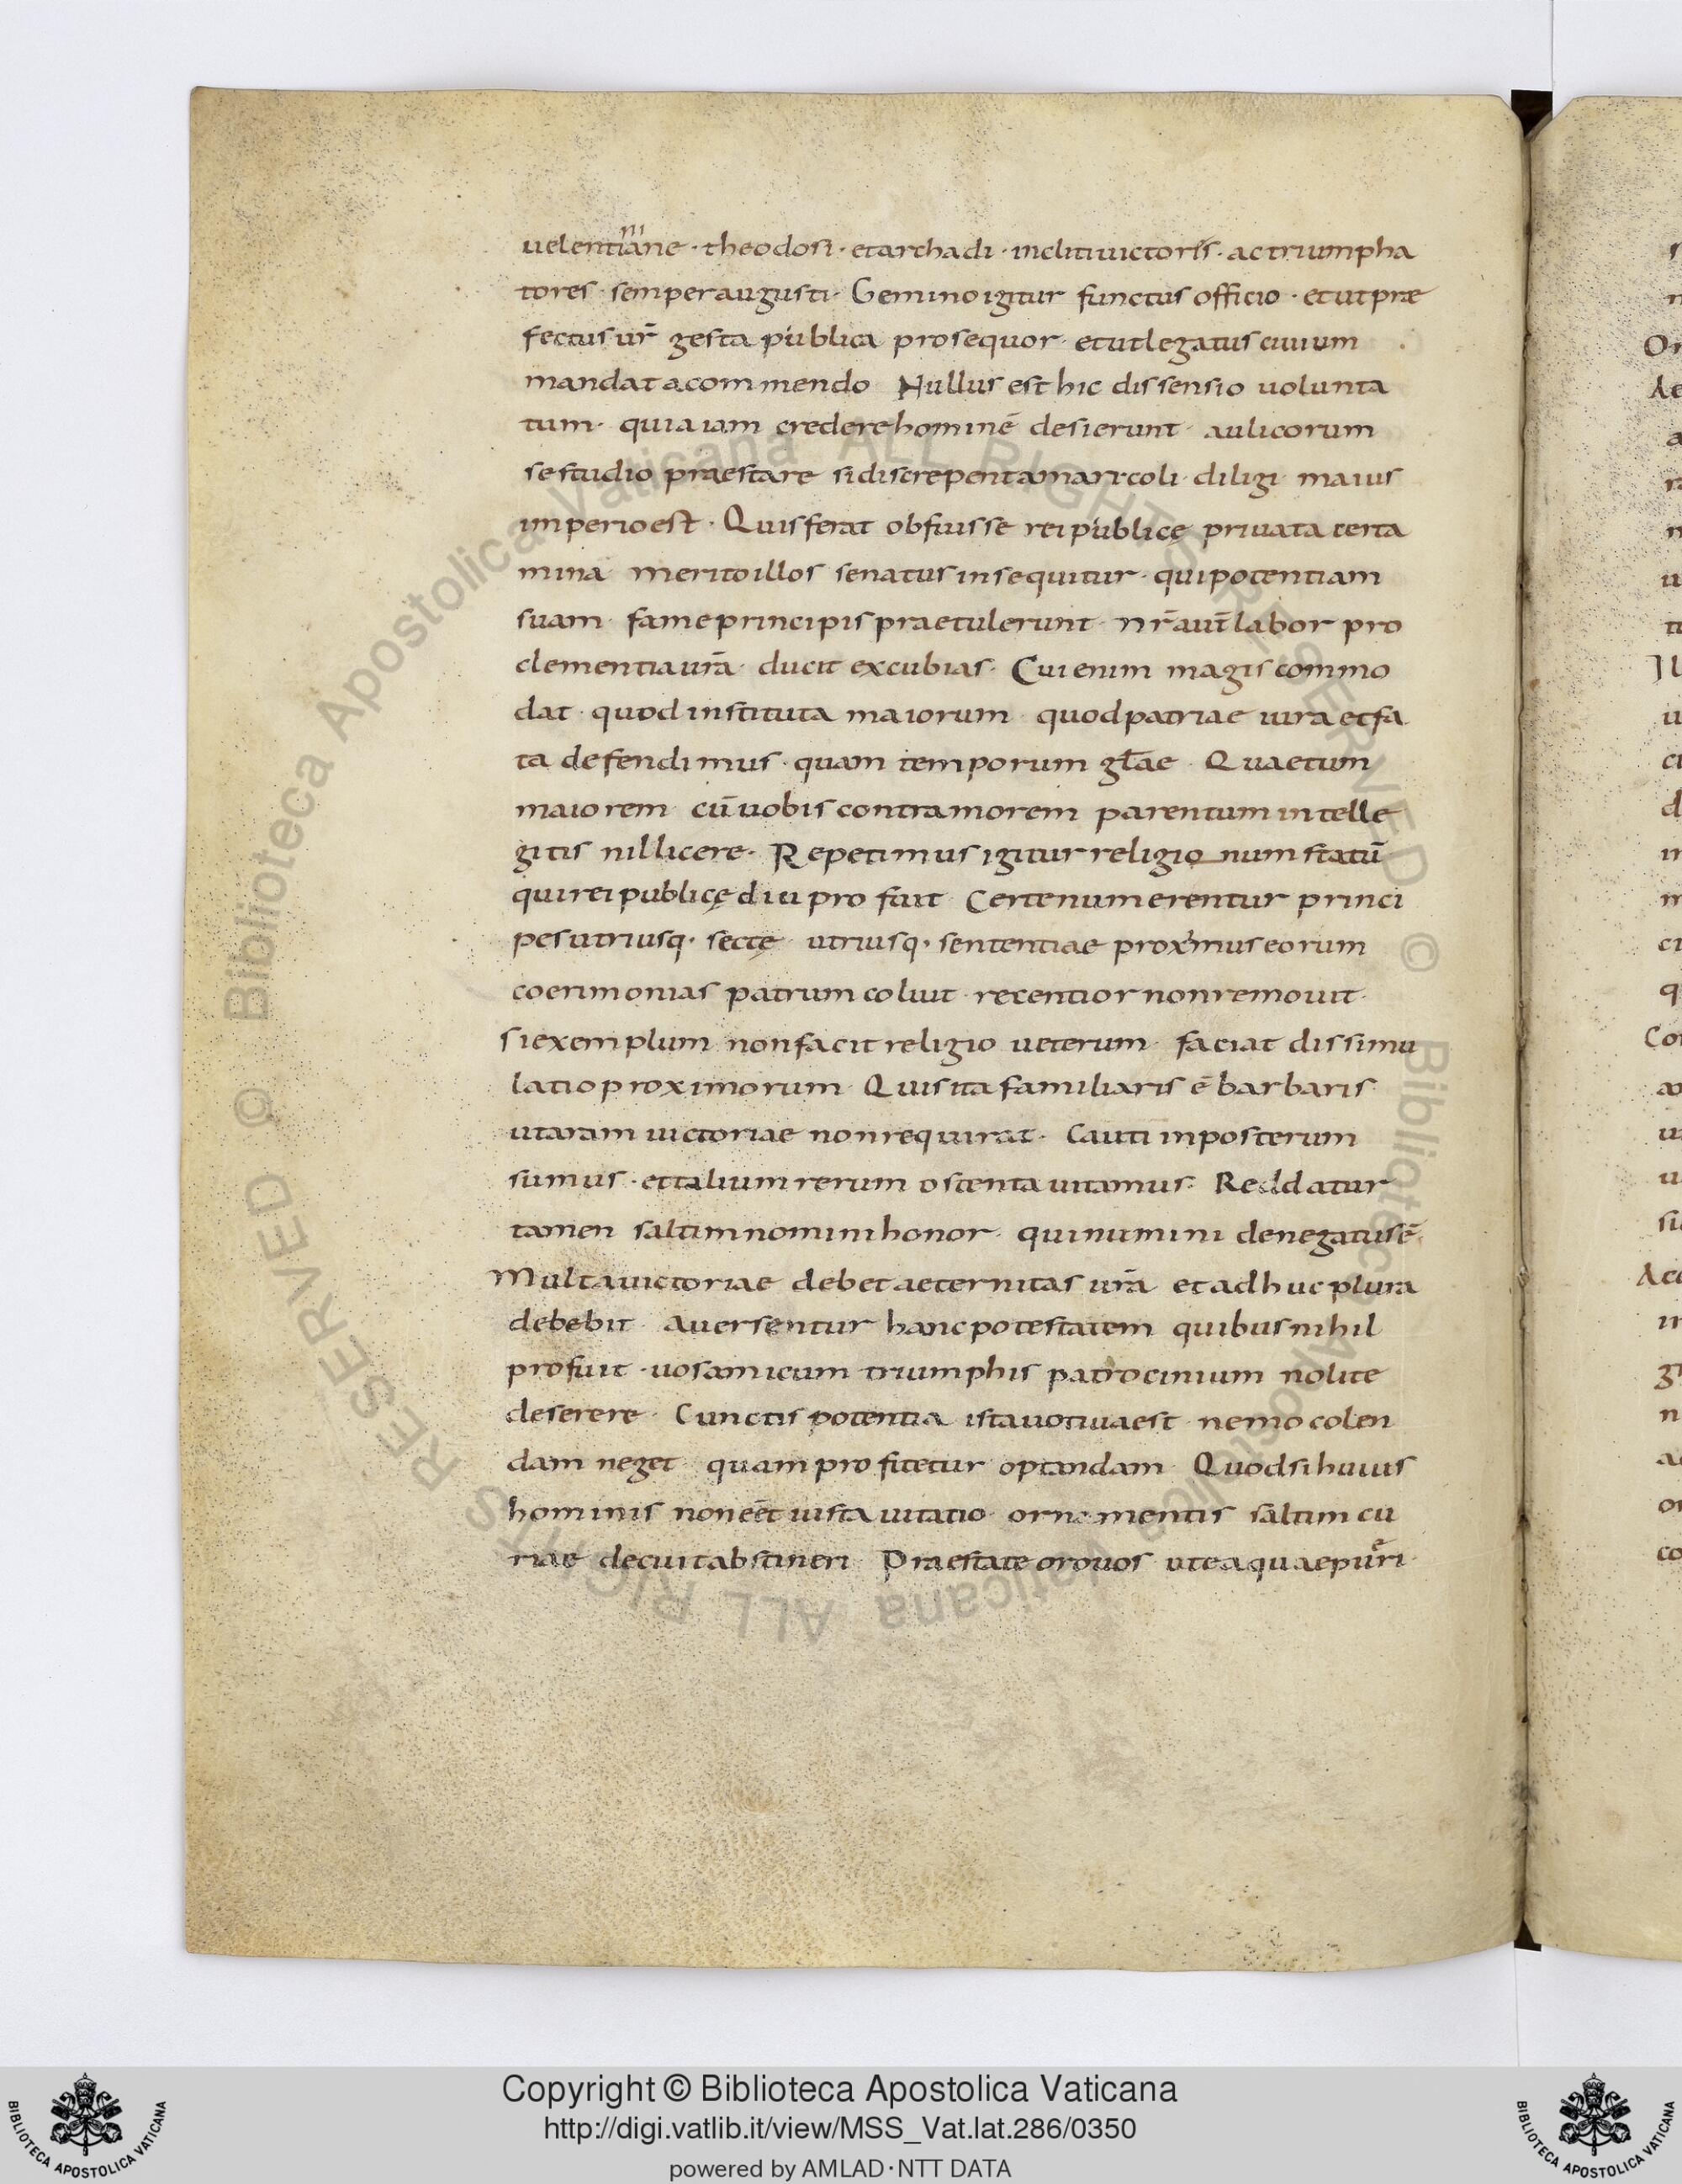 uelentiniane · theodosi · et archadi · incliti uictorīs · ac triumpha
tores · semper augusti · Gemino igitur functus officio · et ut prae
fectus ur̄ gesta publica prosequor · et ut legatus ciuium
mandata commendo Nullus est hic dissensio uolunta
tum · quia iam credere hominē desierunt · aulicorum
se studio praestare si discrepent amari coli · diligi · maius
imperio est · Quis ferat obfuisse rei publicę priuata certa
mina merito illos senatus insequitur · qui potentiam
suam · fame principis praetulerunt · nr̄ aut̄ labor pro
clementia ur̄a · ducit excubias · Cui enim magis commo
dat · quod instituta maiorum · quod patriae iura et fa
ta defendimus · quam temporum gl̄ae · Quae tum
maiorem cū uobis contra morem parentum intelle
gitis nil licere · Repetimus igitur religionum statū
qui rei publicę diu profuit · Certe numerentur princi
pes utriusq· sectę · utriusq· sententiae proximus eorum
coerimonias patrum coluit · recentior non remouit ·
si exemplum non facit religio ueterum · faciat dissimu
latio proximorum · Quis ita familiaris ē barbaris ·
ut aram uictoriae non requirat · Cauti in posterum
sumus · et talium rerum ostenta uitamus · Reddatur
tamen saltim nomini honor · qui numini denegatus ē ·
Multa uictoriae debet aeternitas ur̄a et adhuc plura
debebit · Auersentur hanc potestatem quibus nihil
profuit · uos amicum triumphis patrocinium nolite
deserere · Cunctis potentia ista uotiua est · nemo colen
dam neget · quam profitetur optandam · Quod si huius
hominis non eēt iusta uitatio · ornamentis saltim cu
riae decuit abstineri · Praestate oro uos ut ea quae pueri ·
Copyright © Biblioteca Apostolica Vaticana
http://digi.vatlib.it/view/MSS_Vat.lat.286/0350
powered by AMLAD·NTT DATA